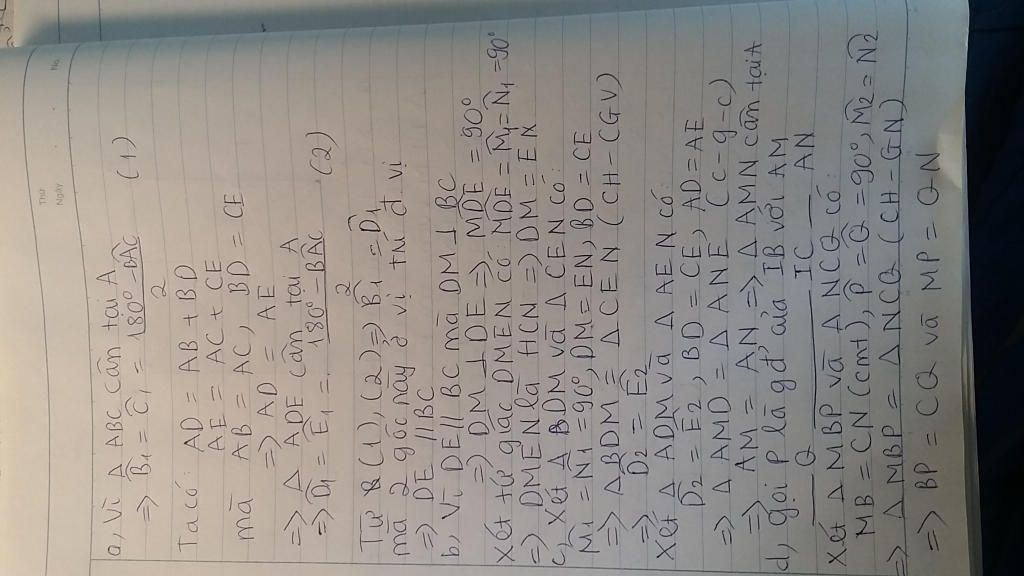 Thứ
Ngày
No.
a, Vì Δ ABC cân tại A
=> B̂1 = Ĉ1 = (180° - BÂC)/2 (1)
Ta có: AD = AB + BD
AE = AC + CE
mà AB = AC, BD = CE
=> AD = AE
=> Δ ADE cân tại A
=> D̂1 = Ê1 = (180° - BÂC)/2 (2)
Từ (1), (2) => B̂1 = D̂1
mà 2 góc này ở vị trí đ vị
=> DE // BC
b, Vì DE // BC mà DM ⊥ BC
=> DM ⊥ DE => MD̂E = 90°
Xét tứ giác DMEN có: MD̂E = M̂1 = N̂1 = 90°
=> DMEN là HCN => DM = EN
c, Xét Δ BDM và Δ CEN có:
M̂1 = N̂1 = 90°, DM = EN, BD = CE
=> Δ BDM = Δ CEN (CH - CGV)
=> D̂2 = Ê2
Xét Δ ADM và Δ AEN có:
D̂2 = Ê2, BD = CE, AD = AE
=> Δ AMD = Δ ANE (c-g-c)
=> AM = AN => Δ AMN cân tại A
d, gọi P là gđ' của IB với AM
Q IC AN
Xét Δ MBP và Δ NCQ có:
MB = CN (cmt), P̂ = Q̂ = 90°, M̂2 = N̂2
=> Δ MBP = Δ NCQ (CH - GN)
=> BP = CQ và MP = QN